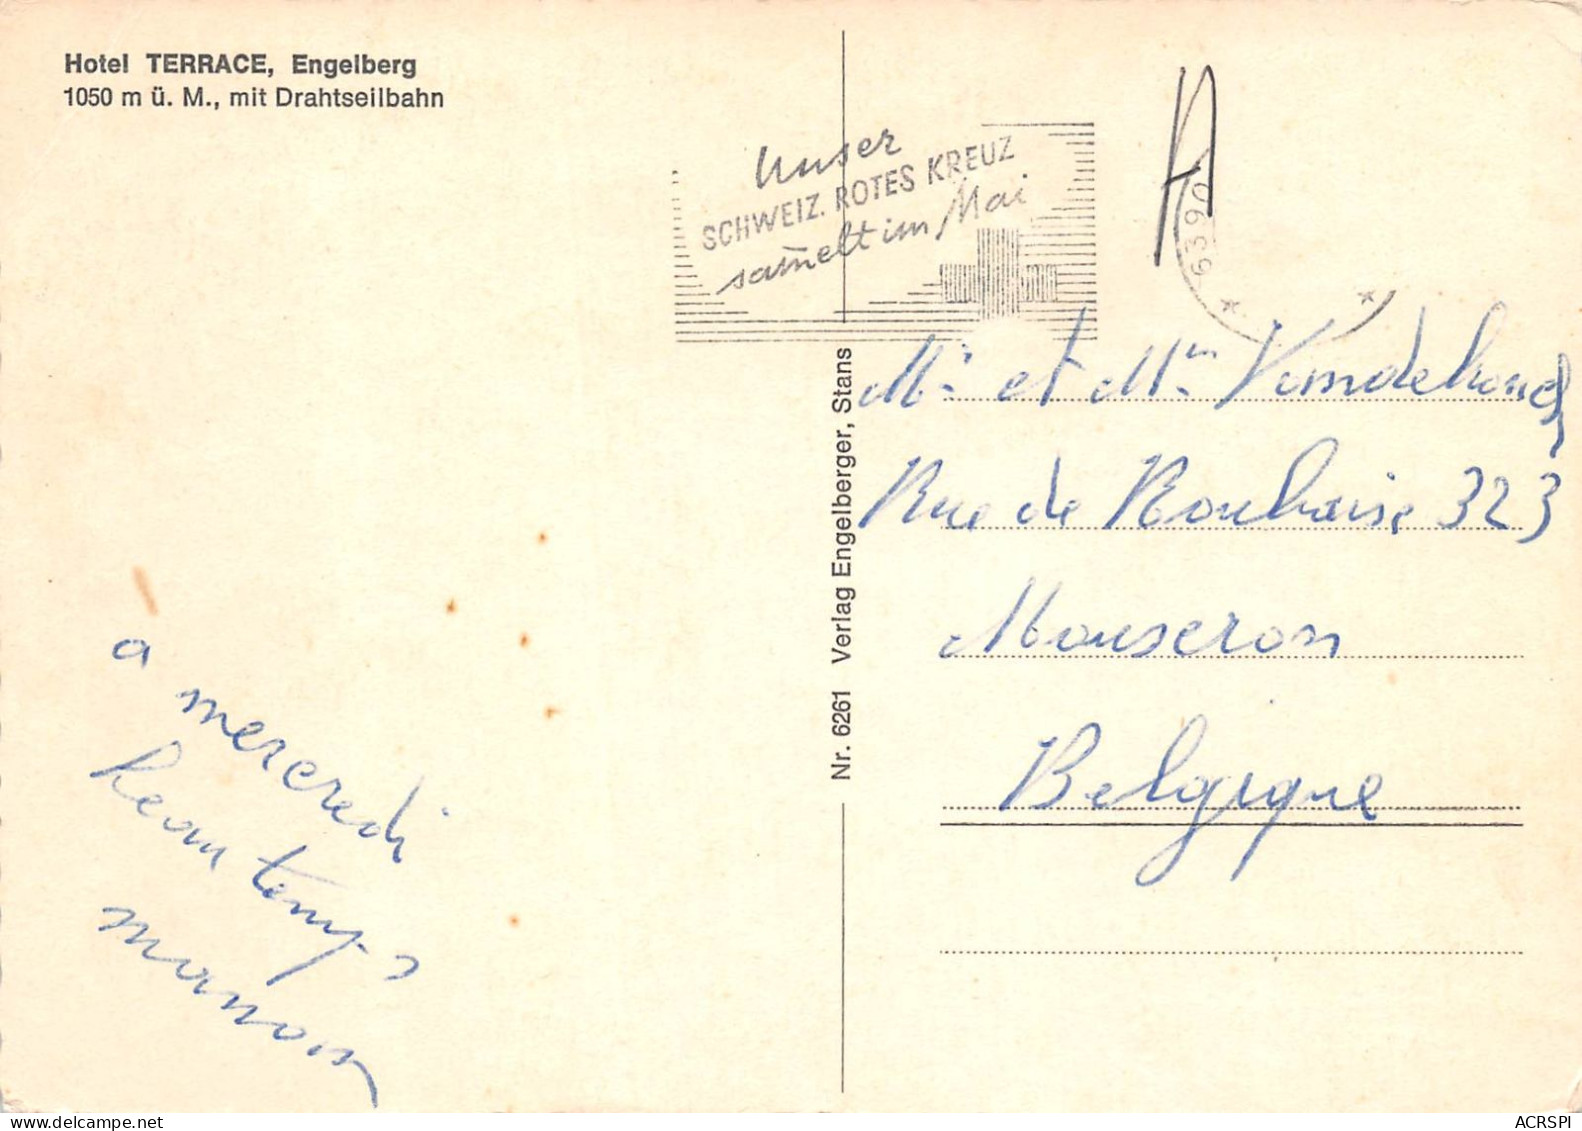 Hotel TERRACE, Engelberg
1050 m ü. M., mit Drahtseilbahn
Unser
SCHWEIZ. ROTES KREUZ
sam̄elt im Mai
6390
Nr. 6261 Verlag Engelberger, Stans
Mr et Mm
Rue de Rouhaise 323
Mouseron
Belgique
a mercredi
beau temps
maman
ACRSPI